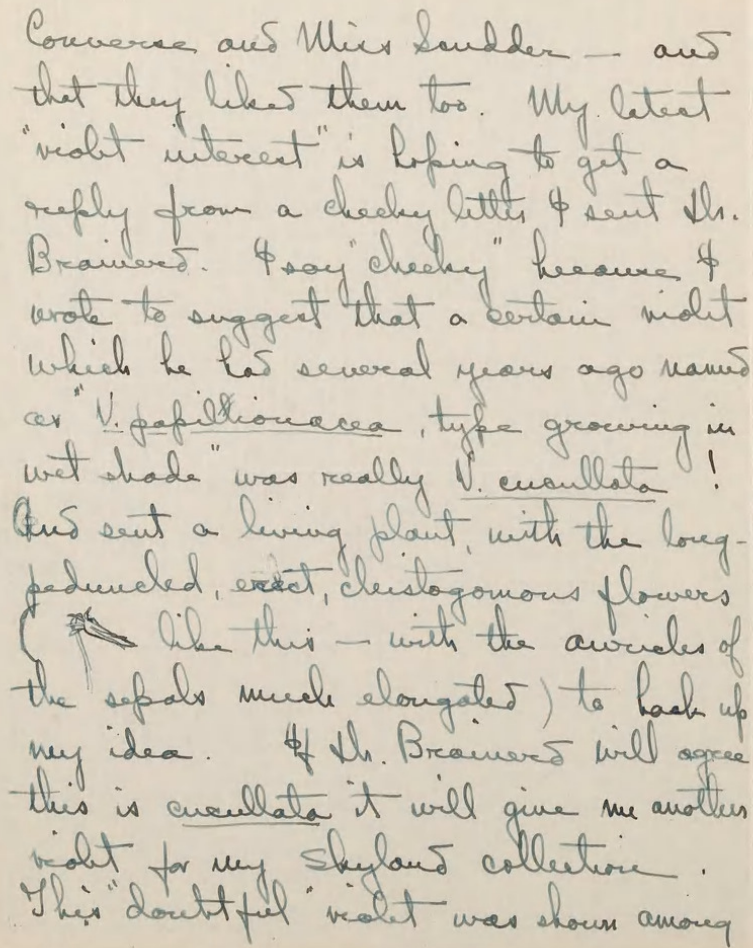 Converse and Miss Scudder — and
that they liked them too. My latest
"violet interest" is hoping to get a
reply from a cheeky letter I sent Dr.
Brainerd. I say "cheeky" because I
wrote to suggest that a certain violet
which he had several years ago named
as "V. papilionacea, type growing in
wet shade" was really V. cucullata !
And sent a living plant, with the long-
peduncled, erect, cleistogomous flowers
( like this — with the auricles of
the sepals much elongated) to back up
my idea. If Dr. Brainerd will agree
this is cucullata it will give me another
violet for my Skyland collection.
This "doubtful" violet was shown among